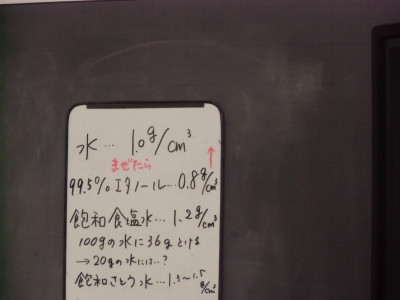 水… 1.0g/cm³
まぜたら ↑
99.5%エタノール…0.8g/cm³
飽和食塩水…1.2g/cm³
100gの水に36gとける
→20gの水には…?
飽和さとう水…1.3~1.5g/cm³